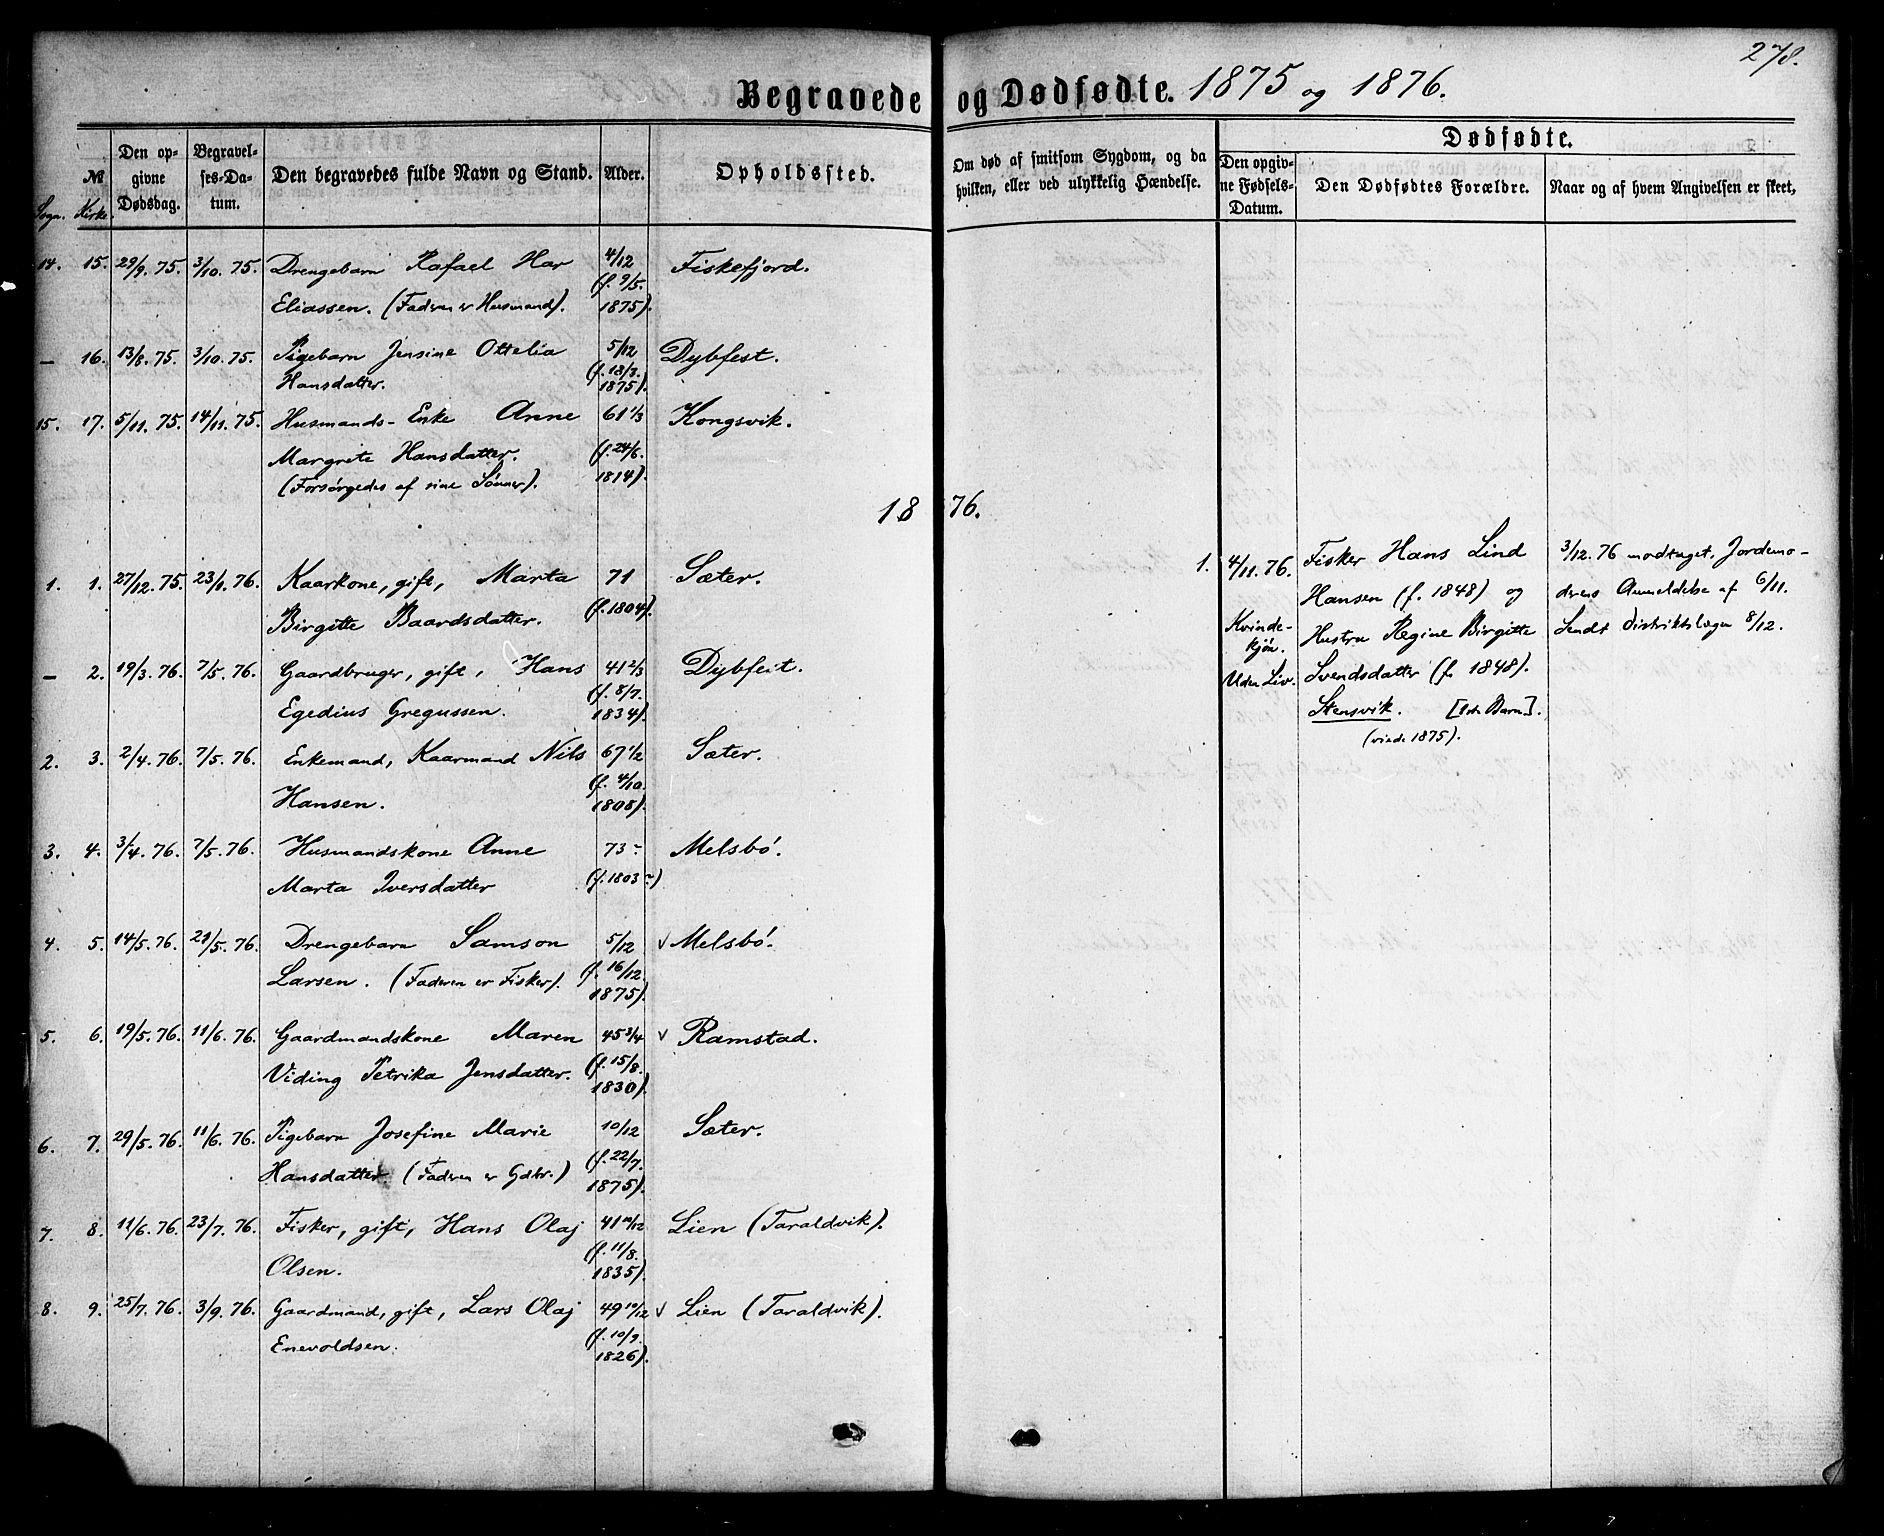 278.
Begravede og Dødfødte. 1875 og 1876.
Dødfødte.
Sogn. № Kirke. Den op-givne Dødsdag. Begravel-ses-Da-tum. Den begravedes fulde Navn og Stand. Alder. Opholdssted. Om død af smitsom Sygdom, og da hvilken, eller ved ulykkelig Hændelse. Den opgiv-ne Fødsels-Datum. Den Dødfødtes Forældre. Naar og af hvem Angivelsen er skeet,
14. 15. 29/9. 75. 3/10. 75. Drengebarn Rafael Har 4/12 Fiskefjord.
(f. 9/5.
Eliassen. (Faderen er Husmand). 1875).
— 16. 13/8. 75. 3/10. 75. Pigebarn Jensine Ottelia 5/12 Dybfest.
(f. 18/3.
Hansdatter. 1875).
15. 17. 5/11. 75. 14/11. 75. Husmands-Enke Anne 61 1/3 Kongsvik.
Margrete Hansdatter. (f. 24/6.
(Forsørgedes af sine Sønner). 1814).
1876.
1. 1. 27/12. 75. 23/1. 76. Kaarkone, gift, Marta 71 Sæter.
Birgitte Baardsdatter. (f. 1804).
— 2. 19/3. 76. 7/5. 76. Gaardbruger, gift, Hans 41 2/3 Dybfest.
(f. 8/7.
Egedius Gregussen. 1834).
2. 3. 2/4. 76. 7/5. 76. Enkemand, Kaarmand Nils 67 1/2 Sæter.
(f. 4/10.
Hansen. 1808).
3. 4. 3/4. 76. 7/5. 76. Husmandskone Anne 73 ~ Melsbö.
Marta Iversdatter (f. 1803 ~)
4. 5. 14/5. 76. 21/5. 76. Drengebarn Samson 5/12 √ Melsbö.
Larsen. (Faderen er Fisker). (f. 16/12.
1875).
5. 6. 19/5. 76. 11/6. 76. Gaardmandskone Maren 45 3/4 √ Ramstad.
Viding Petrika Jensdatter. (f. 15/8.
1830).
6. 7. 29/5. 76. 11/6. 76. Pigebarn Josefine Marie 10/12 Sæter.
Hansdatter (Faderen er Gdbr.) (f. 22/7.
1875).
7. 8. 11/6. 76. 23/7. 76. Fisker, gift, Hans Olaj 41 10/12 Lien (Taraldvik).
(f. 11/8.
Olsen. 1835).
8. 9. 25/7. 76. 3/9. 76. Gaardmand, gift, Lars Olaj 49 10/12 √ Lien (Taraldvik).
Enevoldsen. (f. 10/9.
1826).
1. 4/11. 76. Fisker Hans Lind 3/12. 76 modtaget Jordemo-
Hansen (f. 1848) og derens Anmeldelse af 6/11.
Kvinde-kjön. Hustru Regine Birgitte Sendt Distriktslægen 8/12.
Uden Liv. Svendsdatter (f. 1848).
Stensvik. [1ste Barn].
(viede 1875).